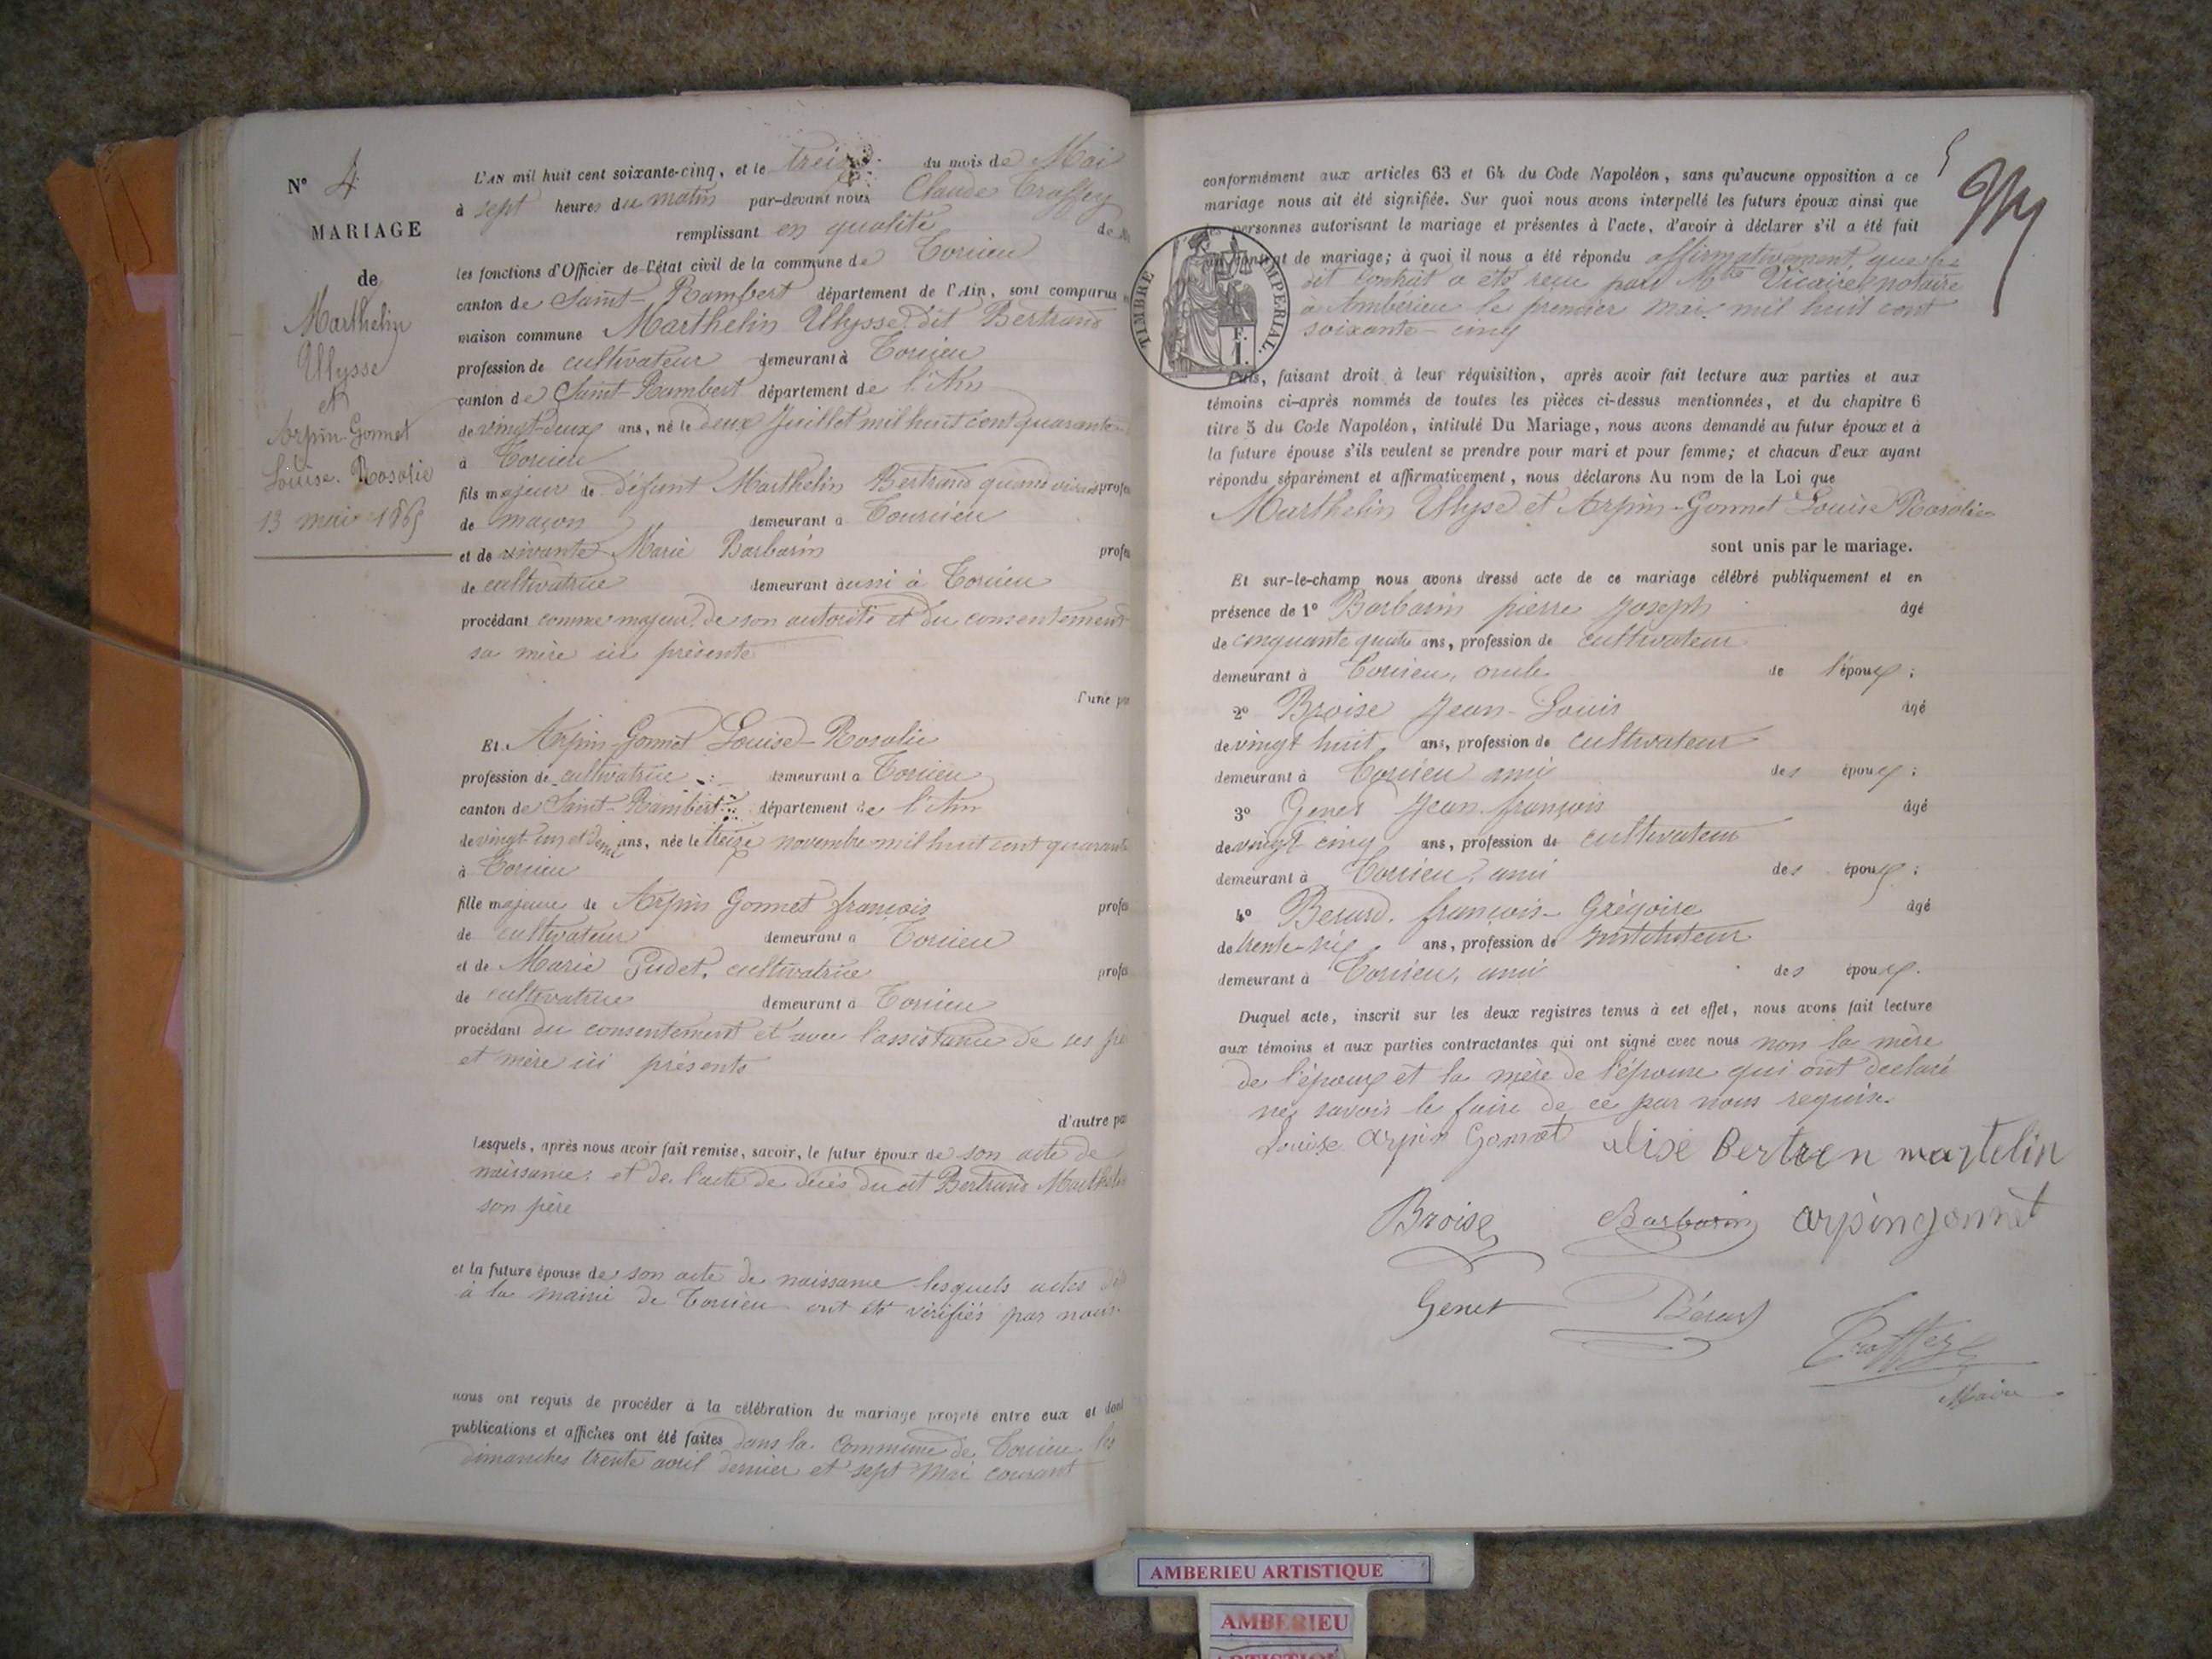 N° 4
MARIAGE
de
Marthelin
Ulysse
et
Arpin-Gonnet
Louise. Rosalie
13 mai 1865
L'AN mil huit cent soixante-cinq, et le treize du mois de Mai
à sept heures du matin par-devant nous Claude Traffey
remplissant en qualité de
les fonctions d'Officier de l'état civil de la commune de Torcieu
canton de Saint-Rambert département de l'Ain, sont comparus
maison commune Marthelin Ulysse dit Bertrand
profession de cultivateur demeurant à Torcieu
canton de Saint-Rambert département de l'Ain
de vingt-deux ans, né le deux Juillet mil huit cent quarante
à Torcieu
fils majeur de défunt Marthelin Bertrand quand vivait profes
de maçon demeurant à Tourcieu
et de vivante Marie Barbarin profes
de cultivatrice demeurant aussi à Torcieu
procédant comme majeur de son autorité et du consentement
sa mère ici présente
d'une par
Et Arpin-Gonnet Louise-Rosalie
profession de cultivatrice demeurant à Torcieu
canton de Saint-Rambert département de l'Ain
de vingt un et demi ans, née le treize novembre mil huit cent quarante
à Torcieu
fille majeure de Arpin Gonnet françois profes
de cultivateur demeurant à Torcieu
et de Marie Pudet, cultivatrice profes
de cultivatrice demeurant à Torcieu
procédant du consentement et avec l'assistance de ses pè
et mère ici présents
d'autre par
Lesquels, après nous avoir fait remise, savoir, le futur époux de son acte de
naissance et de l'acte de décès dudit Bertrand Marthelin
son père
et la future épouse de son acte de naissance lesquels actes
à la mairie de Torcieu ont été vérifiés par nous.
nous ont requis de procéder à la célébration du mariage projeté entre eux et dont
publications et affiches ont été faites dans la Commune de Torcieu les
dimanches trente avril dernier et sept Mai courant
5
conformément aux articles 63 et 64 du Code Napoléon, sans qu'aucune opposition à ce
mariage nous ait été signifiée. Sur quoi nous avons interpellé les futurs époux ainsi que
les personnes autorisant le mariage et présentes à l'acte, d'avoir à déclarer s'il a été fait
un contrat de mariage; à quoi il nous a été répondu affirmativement que le
dit contrat a été reçu par Mtre Vicaire, notaire
à Amberieu le premier mai mil huit cent
soixante-cinq
TIMBRE IMPÉRIAL.
F.
1.
Puis, faisant droit à leur réquisition, après avoir fait lecture aux parties et aux
témoins ci-après nommés de toutes les pièces ci-dessus mentionnées, et du chapitre 6
titre 5 du Code Napoléon, intitulé Du Mariage, nous avons demandé au futur époux et à
la future épouse s'ils veulent se prendre pour mari et pour femme; et chacun d'eux ayant
répondu séparément et affirmativement, nous déclarons Au nom de la Loi que
Marthelin Ulyse et Arpin-Gonnet Louise Rosalie
sont unis par le mariage.
Et sur-le-champ nous avons dressé acte de ce mariage célébré publiquement et en
présence de 1° Barbarin pierre Joseph âgé
de cinquante quatre ans, profession de cultivateur
demeurant à Torcieu, oncle de l'époux;
2° Broise Jean-Louis âgé
de vingt huit ans, profession de cultivateur
demeurant à Torcieu ami des époux;
3° Genet Jean-françois âgé
de vingt cinq ans, profession de cultivateur
demeurant à Torcieu, ami des époux;
4° Berard. françois-Grégoire âgé
de trente-six ans, profession de Instituteur
demeurant à Torcieu, ami des époux.
Duquel acte, inscrit sur les deux registres tenus à cet effet, nous avons fait lecture
aux témoins et aux parties contractantes qui ont signé avec nous non la mère
de l'époux et la mère de l'épouse qui ont declaré
ne savoir le faire de ce par nous requis.
Louise Arpin Gonnet Alise Bertren martelin
Broise Barbarin arpin gonnet
Genet Bérard
Traffey
Maire
AMBERIEU ARTISTIQUE
AMBERIEU
ARTISTIQUE